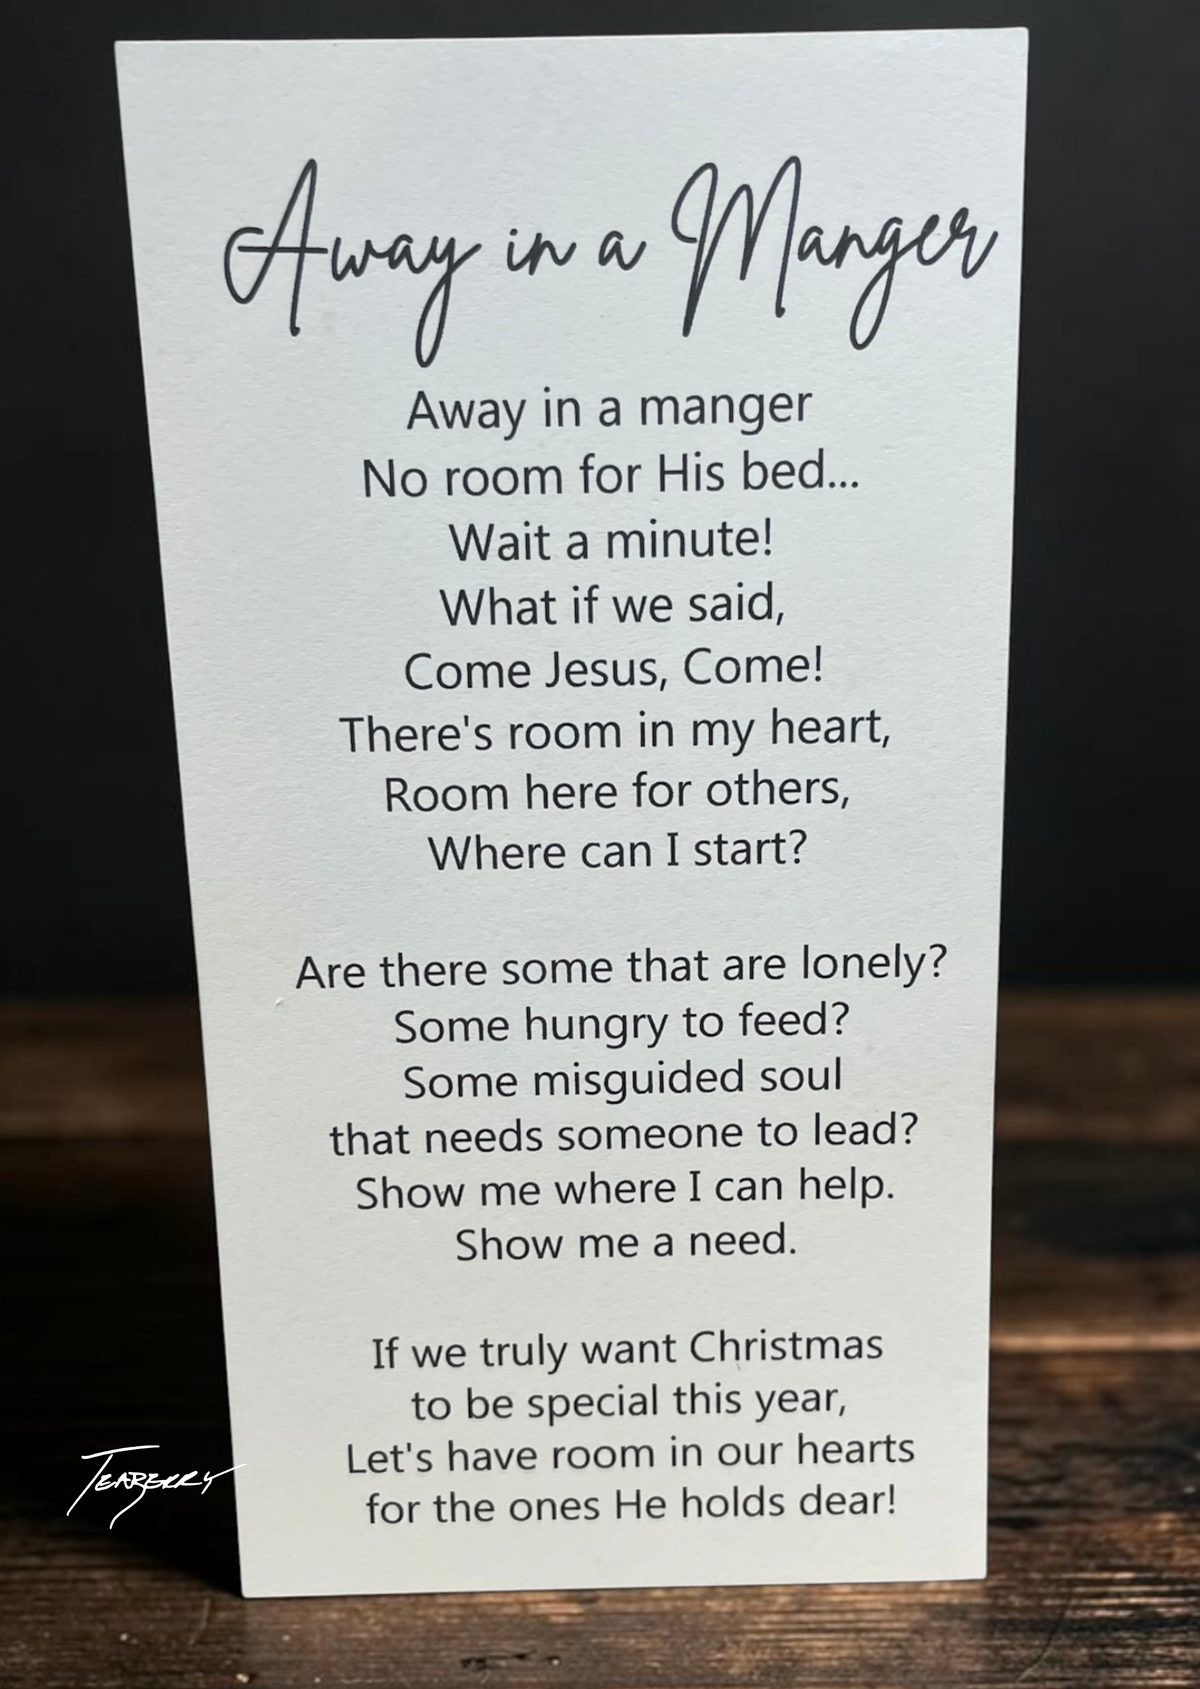 Away in a Manger
Away in a manger
No room for His bed...
Wait a minute!
What if we said,
Come Jesus, Come!
There's room in my heart,
Room here for others,
Where can I start?
Are there some that are lonely?
Some hungry to feed?
Some misguided soul
that needs someone to lead?
Show me where I can help.
Show me a need.
If we truly want Christmas
to be special this year,
Let's have room in our hearts
for the ones He holds dear!
TEABERRY